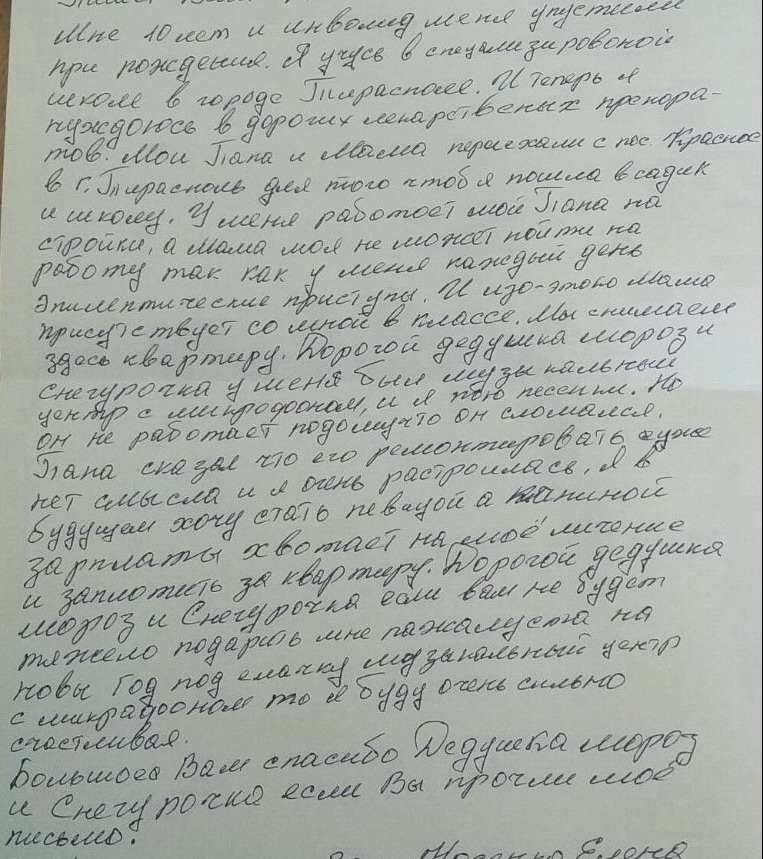 Мне 10 лет и инволид меня упустили
при рождения. Я учусь в спецализировоной
школе в городе Тирасполе. И теперь я
нуждоюсь в дорогих лекарственых препора-
тов. Мои Папа и Мама переехали с пос. Красное
в г. Тирасполь для того чтоб я пошла в садик
и школу. У меня работоет мой Папа на
стройки, а Мама моя не может пойти на
работу так как у меня каждый день
эпилептические приступы. И изо-этого Мама
присутствует со мной в классе. Мы снимаем
здесь квартиру. Дорогой дедушка мороз и
снегурочка у меня был музыкальный
центр с микрофоном, и я пою песенки. Но
он не работает подомучто он сломался.
Папа сказал что его ремонтировать уже
нет смысла и я очень растроилась. Я в
будущем хочу стать певицой а папиной
зарплаты хвотает на моё личение
и заплотить за квартиру. Дорогой дедушка
мороз и Снегурочка если вам не будет
тяжело подарить мне пажалуста на
новы Год под елачку музыкальный центр
с микрафоном то я буду очень сильно
счастливая.
Большоеа Вам спасибо Дедушка мороз
и Снегурочка если Вы прочли моё
письмо.
Елена